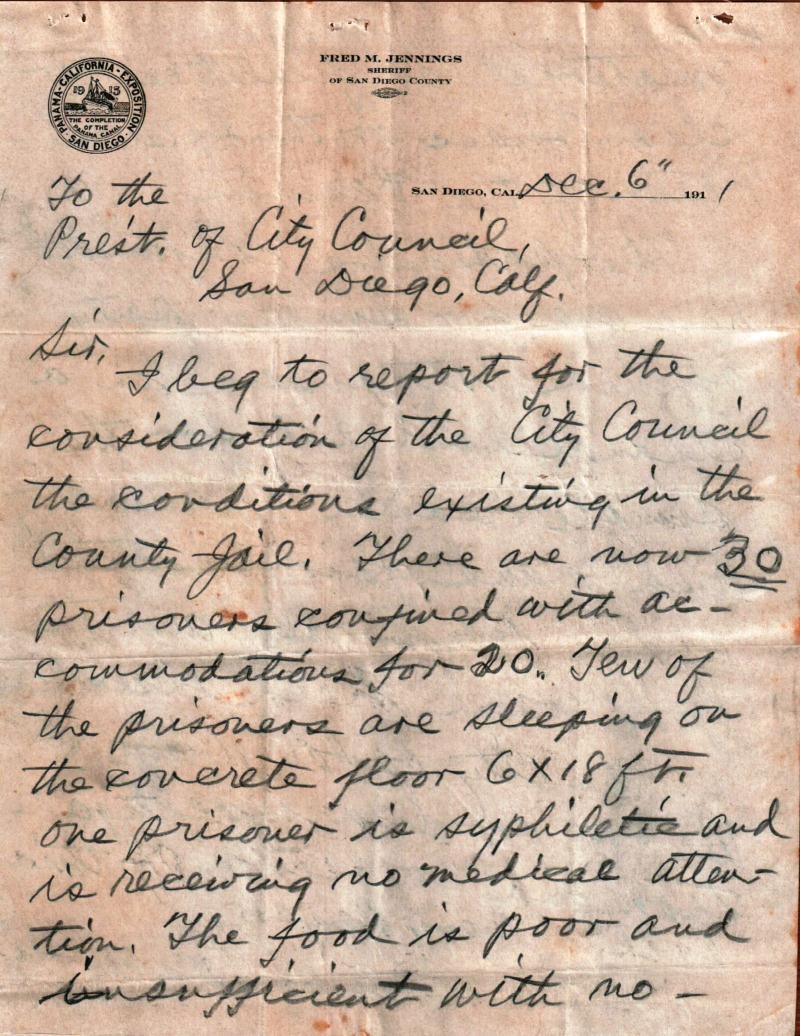 FRED M. JENNINGS
SHERIFF
OF SAN DIEGO COUNTY
PANAMA-CALIFORNIA-EXPOSITION
1915
THE COMPLETION
OF THE
PANAMA CANAL
SAN DIEGO
SAN DIEGO, CAL. Dec. 6" 1911
To the
Prest. of City Council,
San Diego, Calf.
Sir,
I beg to report for the
consideration of the City Council
the conditions existing in the
County Jail. There are now 30
prisoners confined with ac-
commodations for 20. Ten of
the prisoners are sleeping on
the concrete floor 6 X 18 ft.
one prisoner is syphiletic and
is receiving no medical atten-
tion. The food is poor and
insufficient with no -